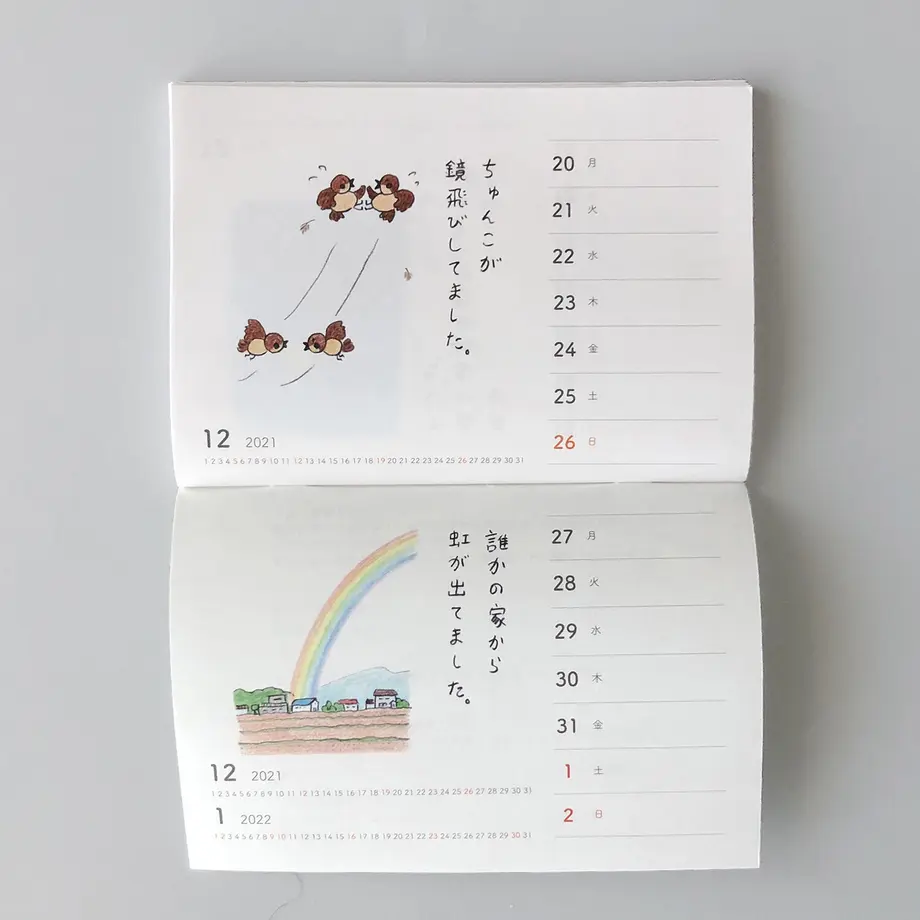 ちゅんこが
鏡飛びしてました。
20 月
21 火
22 水
23 木
24 金
25 土
26 日
12 2021
1 2 3 4 5 6 7 8 9 10 11 12 13 14 15 16 17 18 19 20 21 22 23 24 25 26 27 28 29 30 31
誰かの家から
虹が出てました。
27 月
28 火
29 水
30 木
31 金
1 土
2 日
12 2021
1 2 3 4 5 6 7 8 9 10 11 12 13 14 15 16 17 18 19 20 21 22 23 24 25 26 27 28 29 30 31
1 2022
1 2 3 4 5 6 7 8 9 10 11 12 13 14 15 16 17 18 19 20 21 22 23 24 25 26 27 28 29 30 31